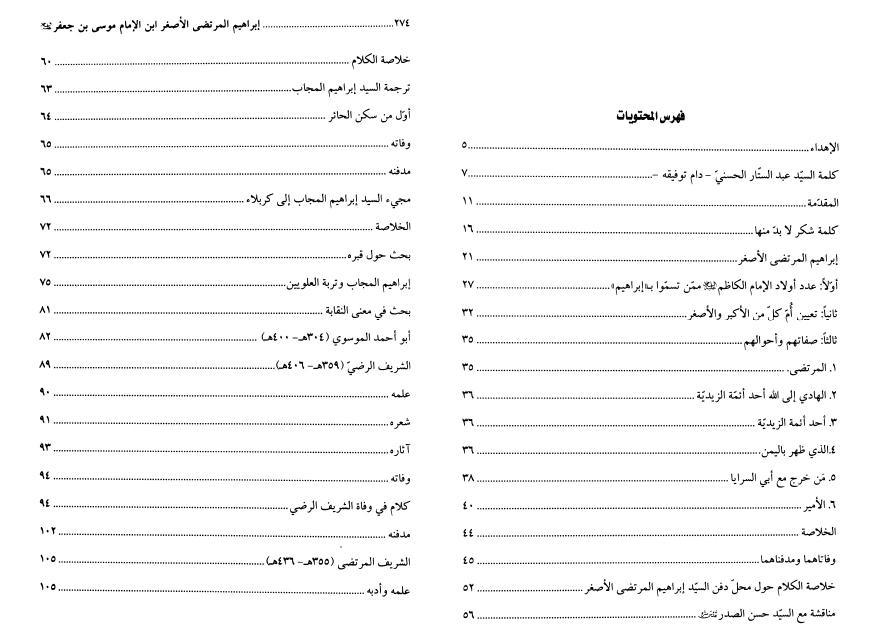 فهرس المحتويات
الإهداء ٥
كلمة السيّد عبد الستّار الحسنيّ - دام توفيقه - ٧
المقدّمة ١١
كلمة شكر لا بدّ منها ١٦
إبراهيم المرتضى الأصغر ٢١
أوّلاً: عدد أولاد الإمام الكاظم ممّن تسمّوا بـ«إبراهيم» ٢٧
ثانياً: تعيين أُمّ كلّ من الأكبر والأصغر ٣٢
ثالثاً: صفاتهم وأحوالهم ٣٥
١. المرتضى. ٣٥
٢. الهادي إلى الله أحد أئمّة الزيديّة ٣٦
٣. أحد أئمة الزيديّة ٣٦
٤.الذي ظهر باليمن. ٣٦
٥. مَن خرج مع أبي السرايا ٣٨
٦. الأمير ٤٠
الخلاصة ٤٤
وفاتاهما ومدفناهما ٤٥
خلاصة الكلام حول محلّ دفن السيّد إبراهيم المرتضى الأصغر ٥٢
مناقشة مع السيّد حسن الصدر ٥٦
٢٧٤ إبراهيم المرتضى الأصغر ابن الإمام موسى بن جعفر
خلاصة الكلام ٦٠
ترجمة السيد إبراهيم المجاب ٦٣
أوّل من سكن الحائر ٦٤
وفاته ٦٥
مدفنه ٦٥
مجيء السيد إبراهيم المجاب إلى كربلاء ٦٦
الخلاصة ٧٢
بحث حول قبره ٧٢
إبراهيم المجاب وتربة العلويين ٧٥
بحث في معنى النقابة ٨١
أبو أحمد الموسوي (٣٠٤هـ- ٤٠٠هـ) ٨٢
الشريف الرضيّ (٣٥٩هـ- ٤٠٦هـ) ٨٩
علمه ٩٠
شعره ٩١
آثاره ٩٣
وفاته ٩٤
كلام في وفاة الشريف الرضي ٩٤
مدفنه ١٠٢
الشريف المرتضى (٣٥٥هـ- ٤٣٦هـ) ١٠٥
علمه وأدبه ١٠٥